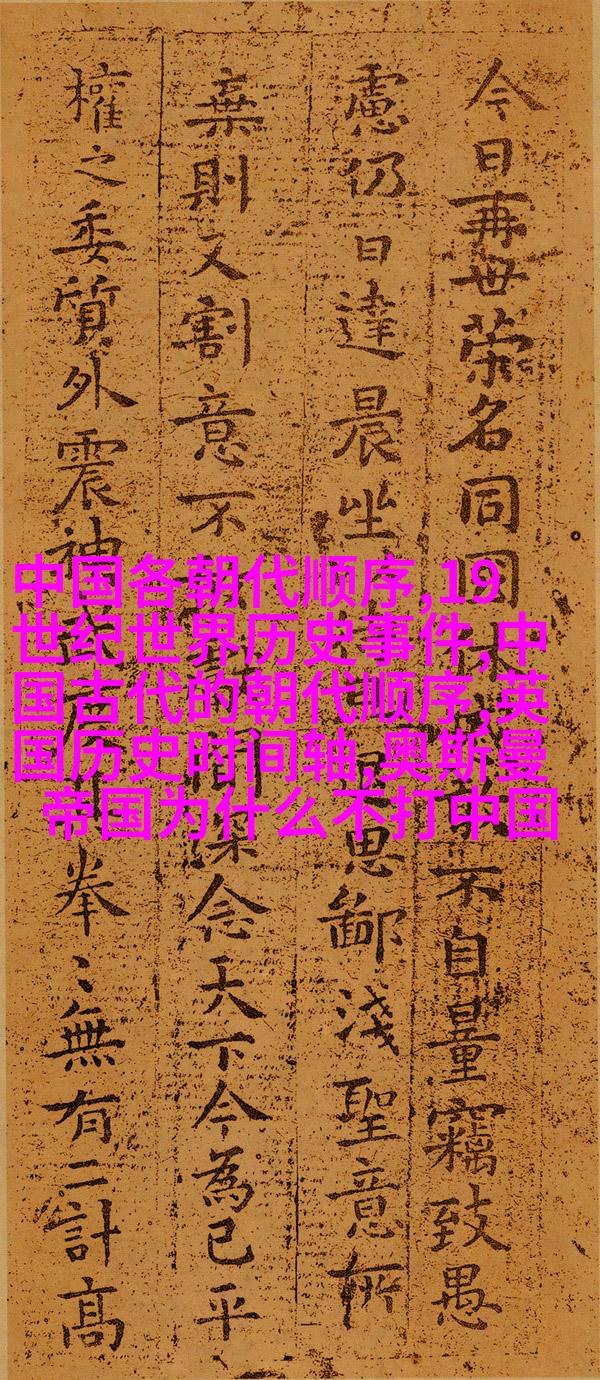 中国各朝代顺序,19
世纪世界历史事件,中
国古代的朝代顺序,英
国历史时间轴,奥斯曼
帝国为什么不打中国
今日再世荣名同国休不自量竊致愚
慮仍日達晨坐思鄙淺聖意所
棄則又割意不深念天下今為已平
權之委質外震神拳〻無有二計高